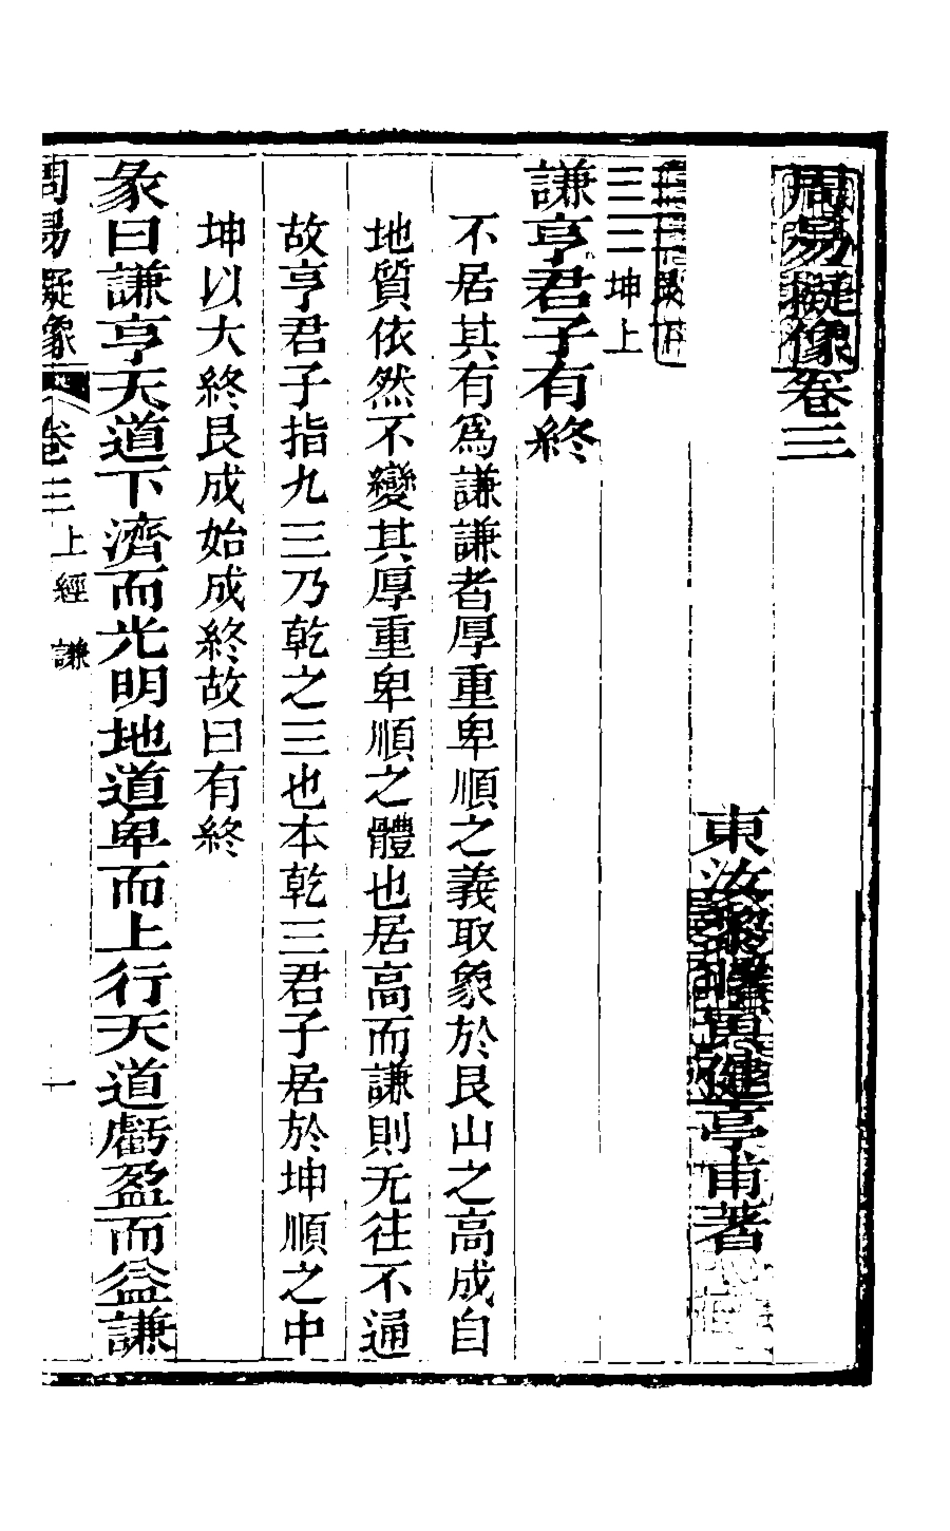 周易擬像卷三
東汝黎曙寅健亭甫著
坤上
艮下
謙亨君子有終
不居其有為謙謙者厚重卑順之義取象於艮山之高成自
地質依然不變其厚重卑順之體也居高而謙則无往不通
故亨君子指九三乃乾之三也本乾三君子居於坤順之中
坤以大終艮成始成終故曰有終
彖曰謙亨天道下濟而光明地道卑而上行天道虧盈而益謙
周易擬象 卷三 上經 謙 一